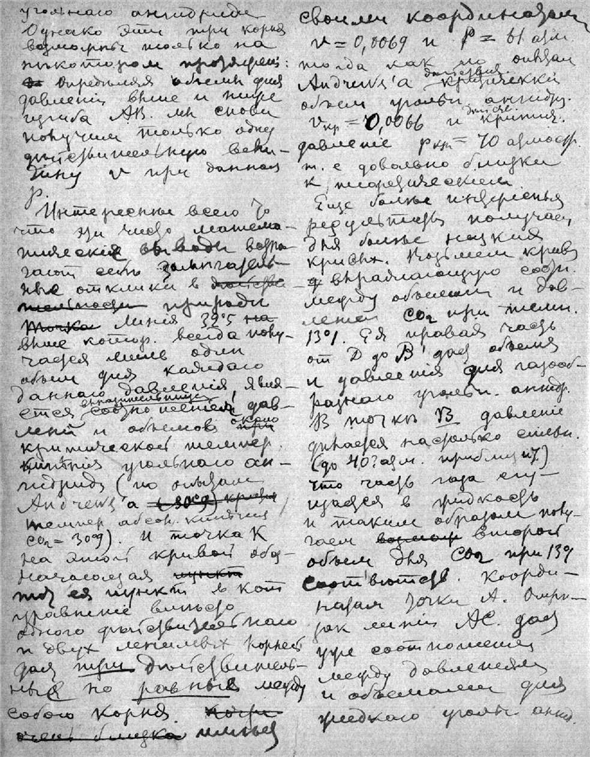 угольнаго ангидрида
Однако эти три корня
возможны только на
некотором
Определяя объемы для
давлений выше и ниже
изгиба АВ. мы снова
получим только одну
действительную вели-
чину v при данном
p.
Интереснее всего то
что эти чисто матема-
тические выводы
есть
ные отклики в
природы
линiя 32°5
выше котор. всегда полу-
чается лишь один
объем для каждаго
даннаго давления явля-
ется дав-
лений и объемов около
критической темпер.
угольнаго ан-
гидрида (по опытам
Андрюса
темпер. абсол. кипения
CO2 = 30°9). И точка К
на этой кривой обо-
значающая пункт
тот ея пункт в кот.
уравнение вместо
одного действительнаго
и двух мнимых корней
дает три действитель-
ные но равные между
собою корня.
очень близка имеет
своими координатами
v = 0,0069 и P = 61 атм
тогда как по опытам
критический
объем угольн. ангидр.
vкр = 0,0066 и критич.
давление pкр = 70 атмосф.
т. е довольно близки
к теоретическим
Еще более интересные
результаты получаем
для более низких
кривых. Возьмем кривую
выражающую соотн.
между объемом и дав-
лением CO2 при темп.
13°1. Ея правая часть
от D до B дает объемы
и давления для газооб-
разнаго угольн. ангидр.
В точке B давление
делается настолько сильн.
(до 40? атм. приблиз.)
что часть газа сгу-
щается в жидкость
и таким образом полу-
чаем второй
объем для CO2 при 13°1
Коорди-
натам точки А.
линия АС. дает
уже соотношения
между давлением
и объемами для
жидкаго угольн. анг.